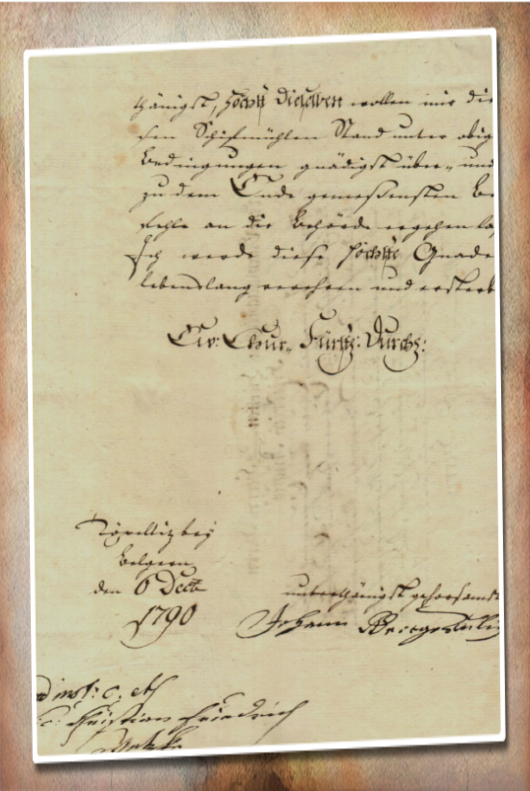 thänigst, Höchst Dieselben wollen mir die
sen Schifmühlen Stand unter obig
Bedingungen gnädigst über- und
zu dem Ende gemeßensten Be
fehle an die Behörde ergehen la
Ich werde diese höchste Gnade
lebenslang verehren und ersterb
Ew: Chur- Fürstl: Durchl:
bey
Belgern
den 6 Decb
1790
unterthänigst gehorsamst
Johann
Christian Friedrich